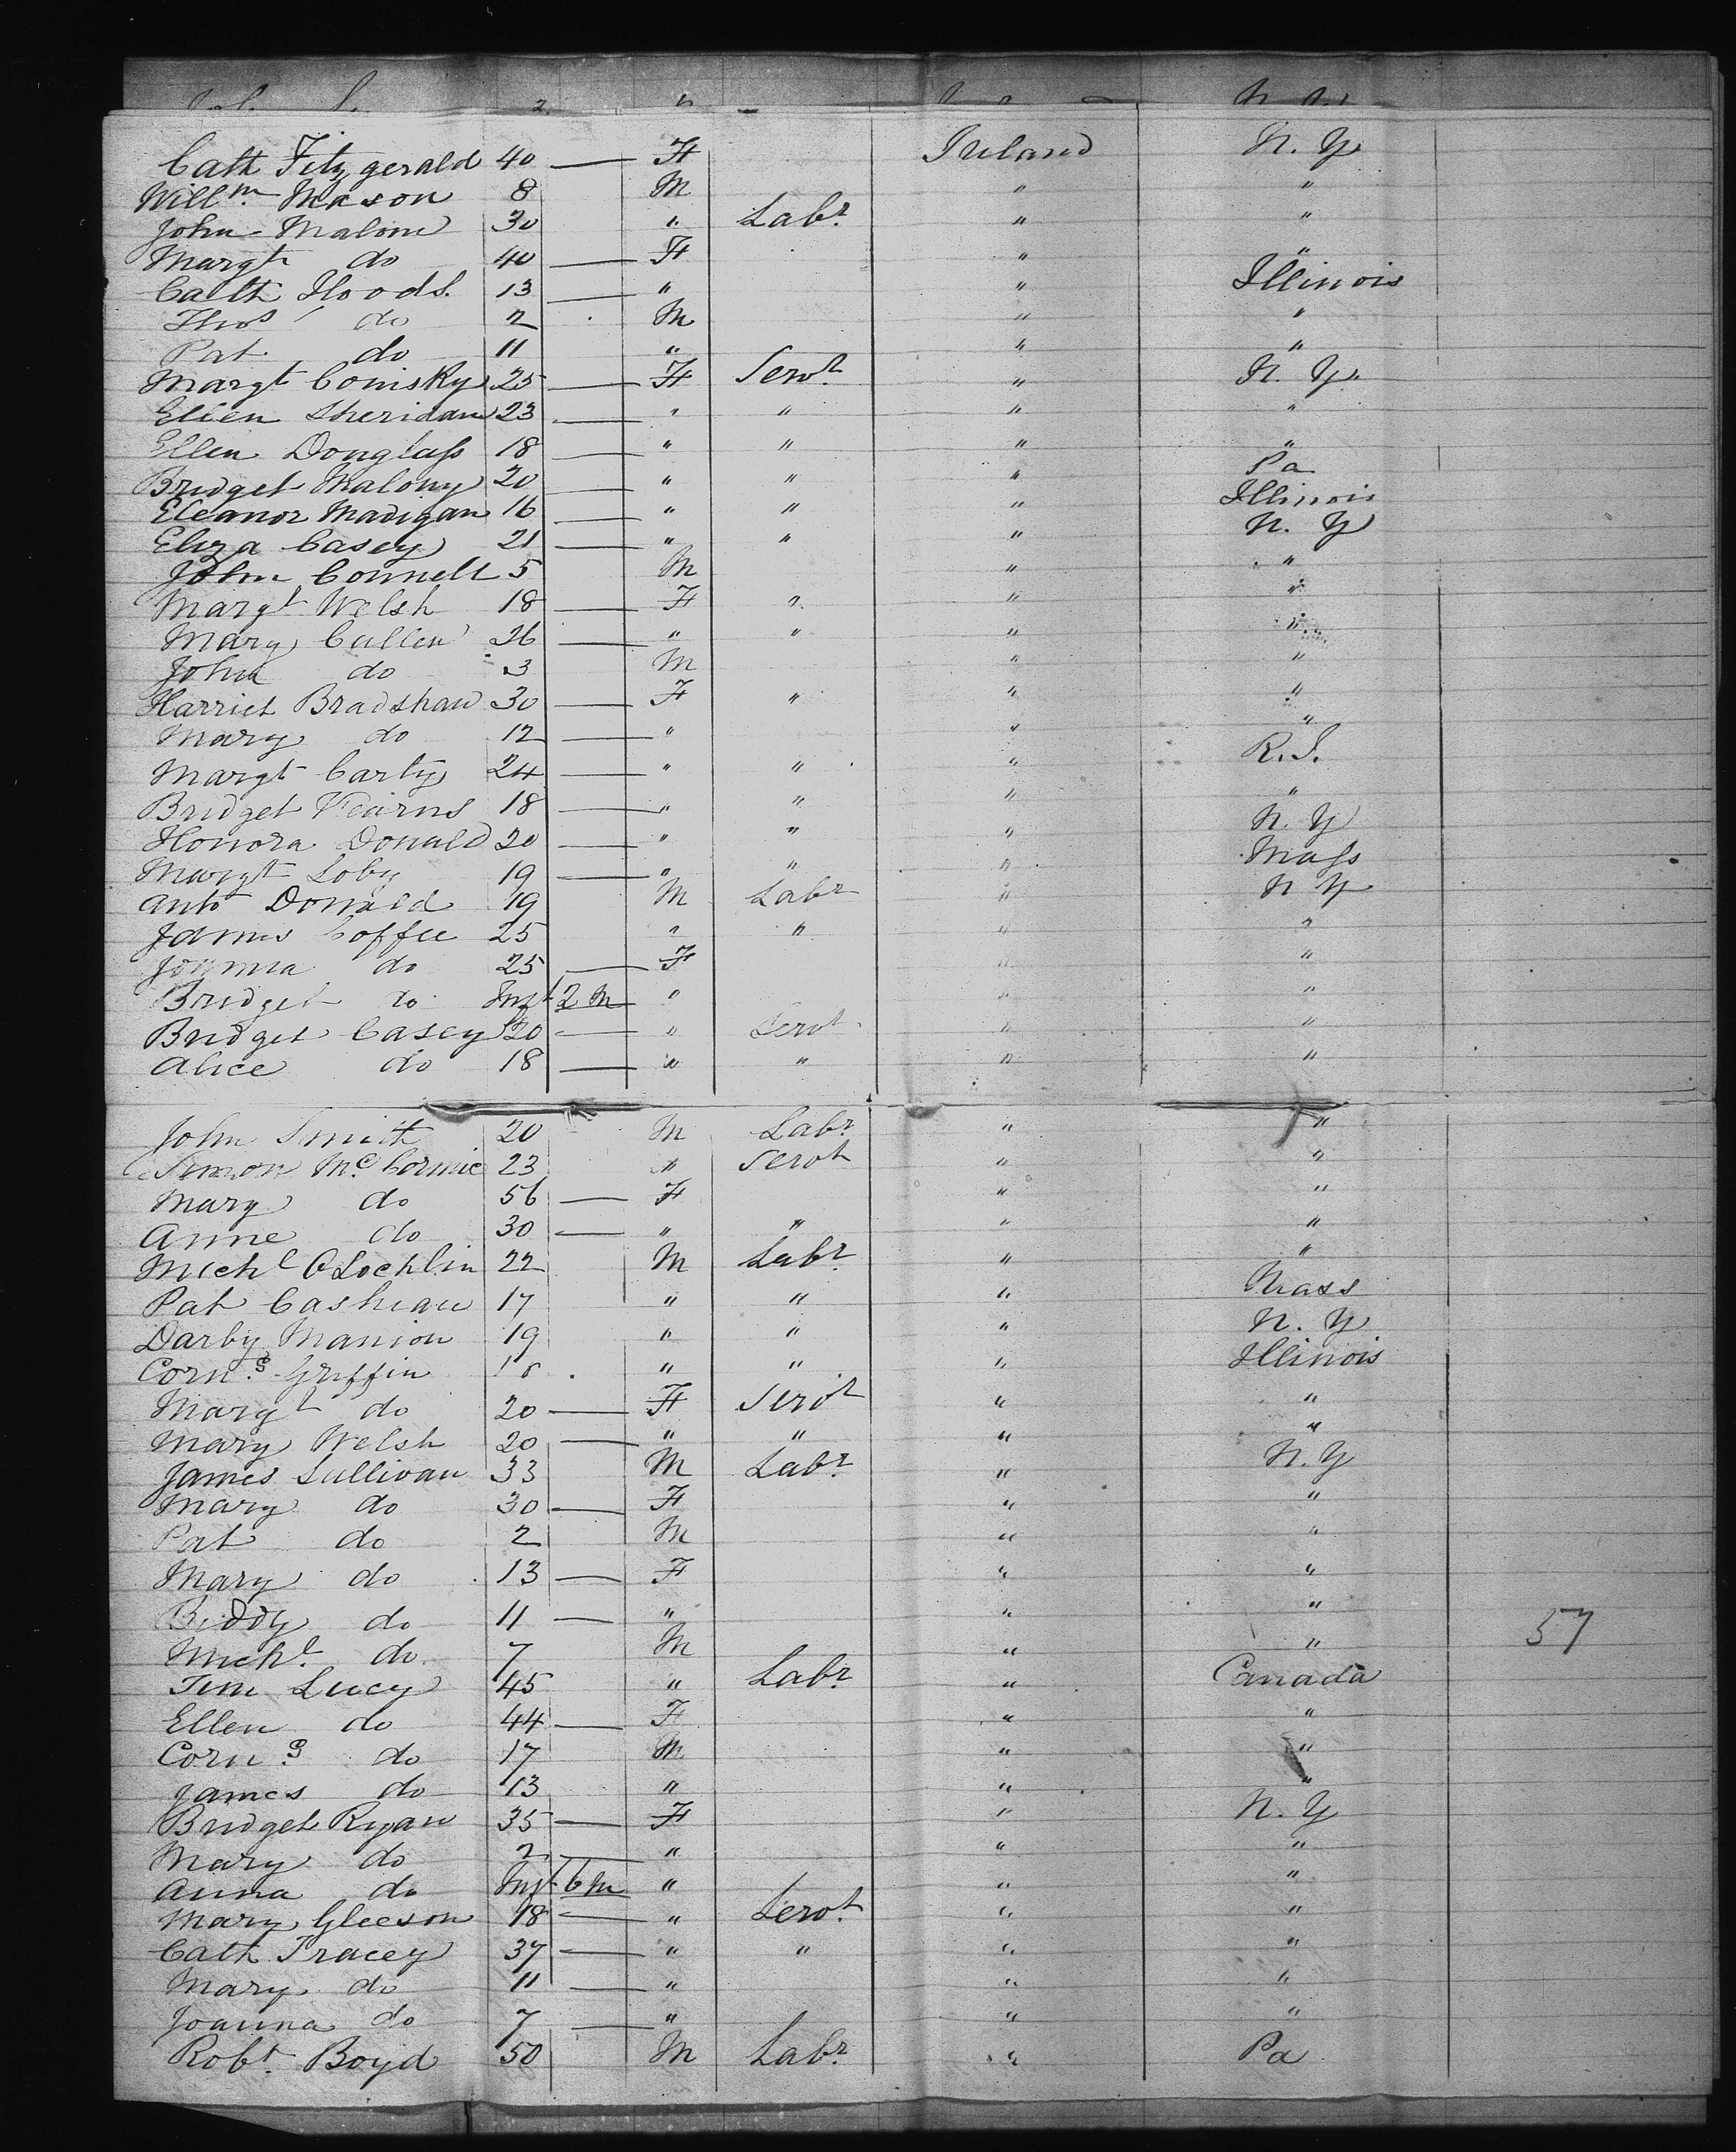 Cath Fitzgerald 40 — F Ireland N. Y
Willm. Mason 8 M " "
John Malone 30 " Labr. " "
Margt do 40 — F " "
Cath Floods. 13 — " " Illinois
Thos do 2 M " "
Pat do 11 " " "
Margt Conisky 25 — F Servt. " N. Y.
Ellen Sheridan 23 — " " " "
Ellen Douglass 18 — " " " "
Bridget Malony 20 — " " " Pa
Eleanor Madigan 16 — " " " Illinois
Eliza Casey 21 — " " " N. Y
John Connell 5 M " "
Margt Welsh 18 — F " " "
Mary Cullen 26 — " " " "
John do 3 M " "
Harriet Bradshaw 30 — F " " "
Mary do 12 — " " "
Margt Carty 24 — " " " R. I.
Bridget Kearns 18 — " " " "
Honora Donald 20 — " " " N. Y
Margt Loby 19 — " " " Mass
Anto Donald 19 M Labr " N Y
James Coffee 25 " " " "
Joanna do 25 — F " "
Bridget do Inft 2 m " " "
Bridget Casey 20 — " Servt. " "
Alice do 18 — " " " "
John Smith 20 M Labr. " "
Simon McCormic 23 " Servt " "
Mary do 56 — F " "
Anne do 30 — " " " "
Michl O Lochlin 22 M Labr. " "
Pat Cashman 17 " " " Mass
Darby Manion 19 " " " N. Y
Corns. Griffin " " " Illinois
Margt do 20 — F Servt " "
Mary Welsh 20 — " " " "
James Sullivan 33 M Labr. " N. Y
Mary do 30 — F " "
Pat do 2 M " "
Mary do 13 — F " "
Biddy do 11 — " " "
Michl. do 7 M " " 57
Tim Lucy 45 " Labr. " Canada
Ellen do 44 — F " "
Corns. do 17 M " "
James do 13 " " "
Bridget Ryan 35 — F " N. Y
Mary do 2 — " " "
Anna do Inft 6 m " " "
Mary Gleeson 18 — " Servt. " "
Cath Tracey 37 — " " " "
Mary do 11 — " " "
Joanna do 7 — " " "
Robt. Boyd 50 M Labr. " Pa